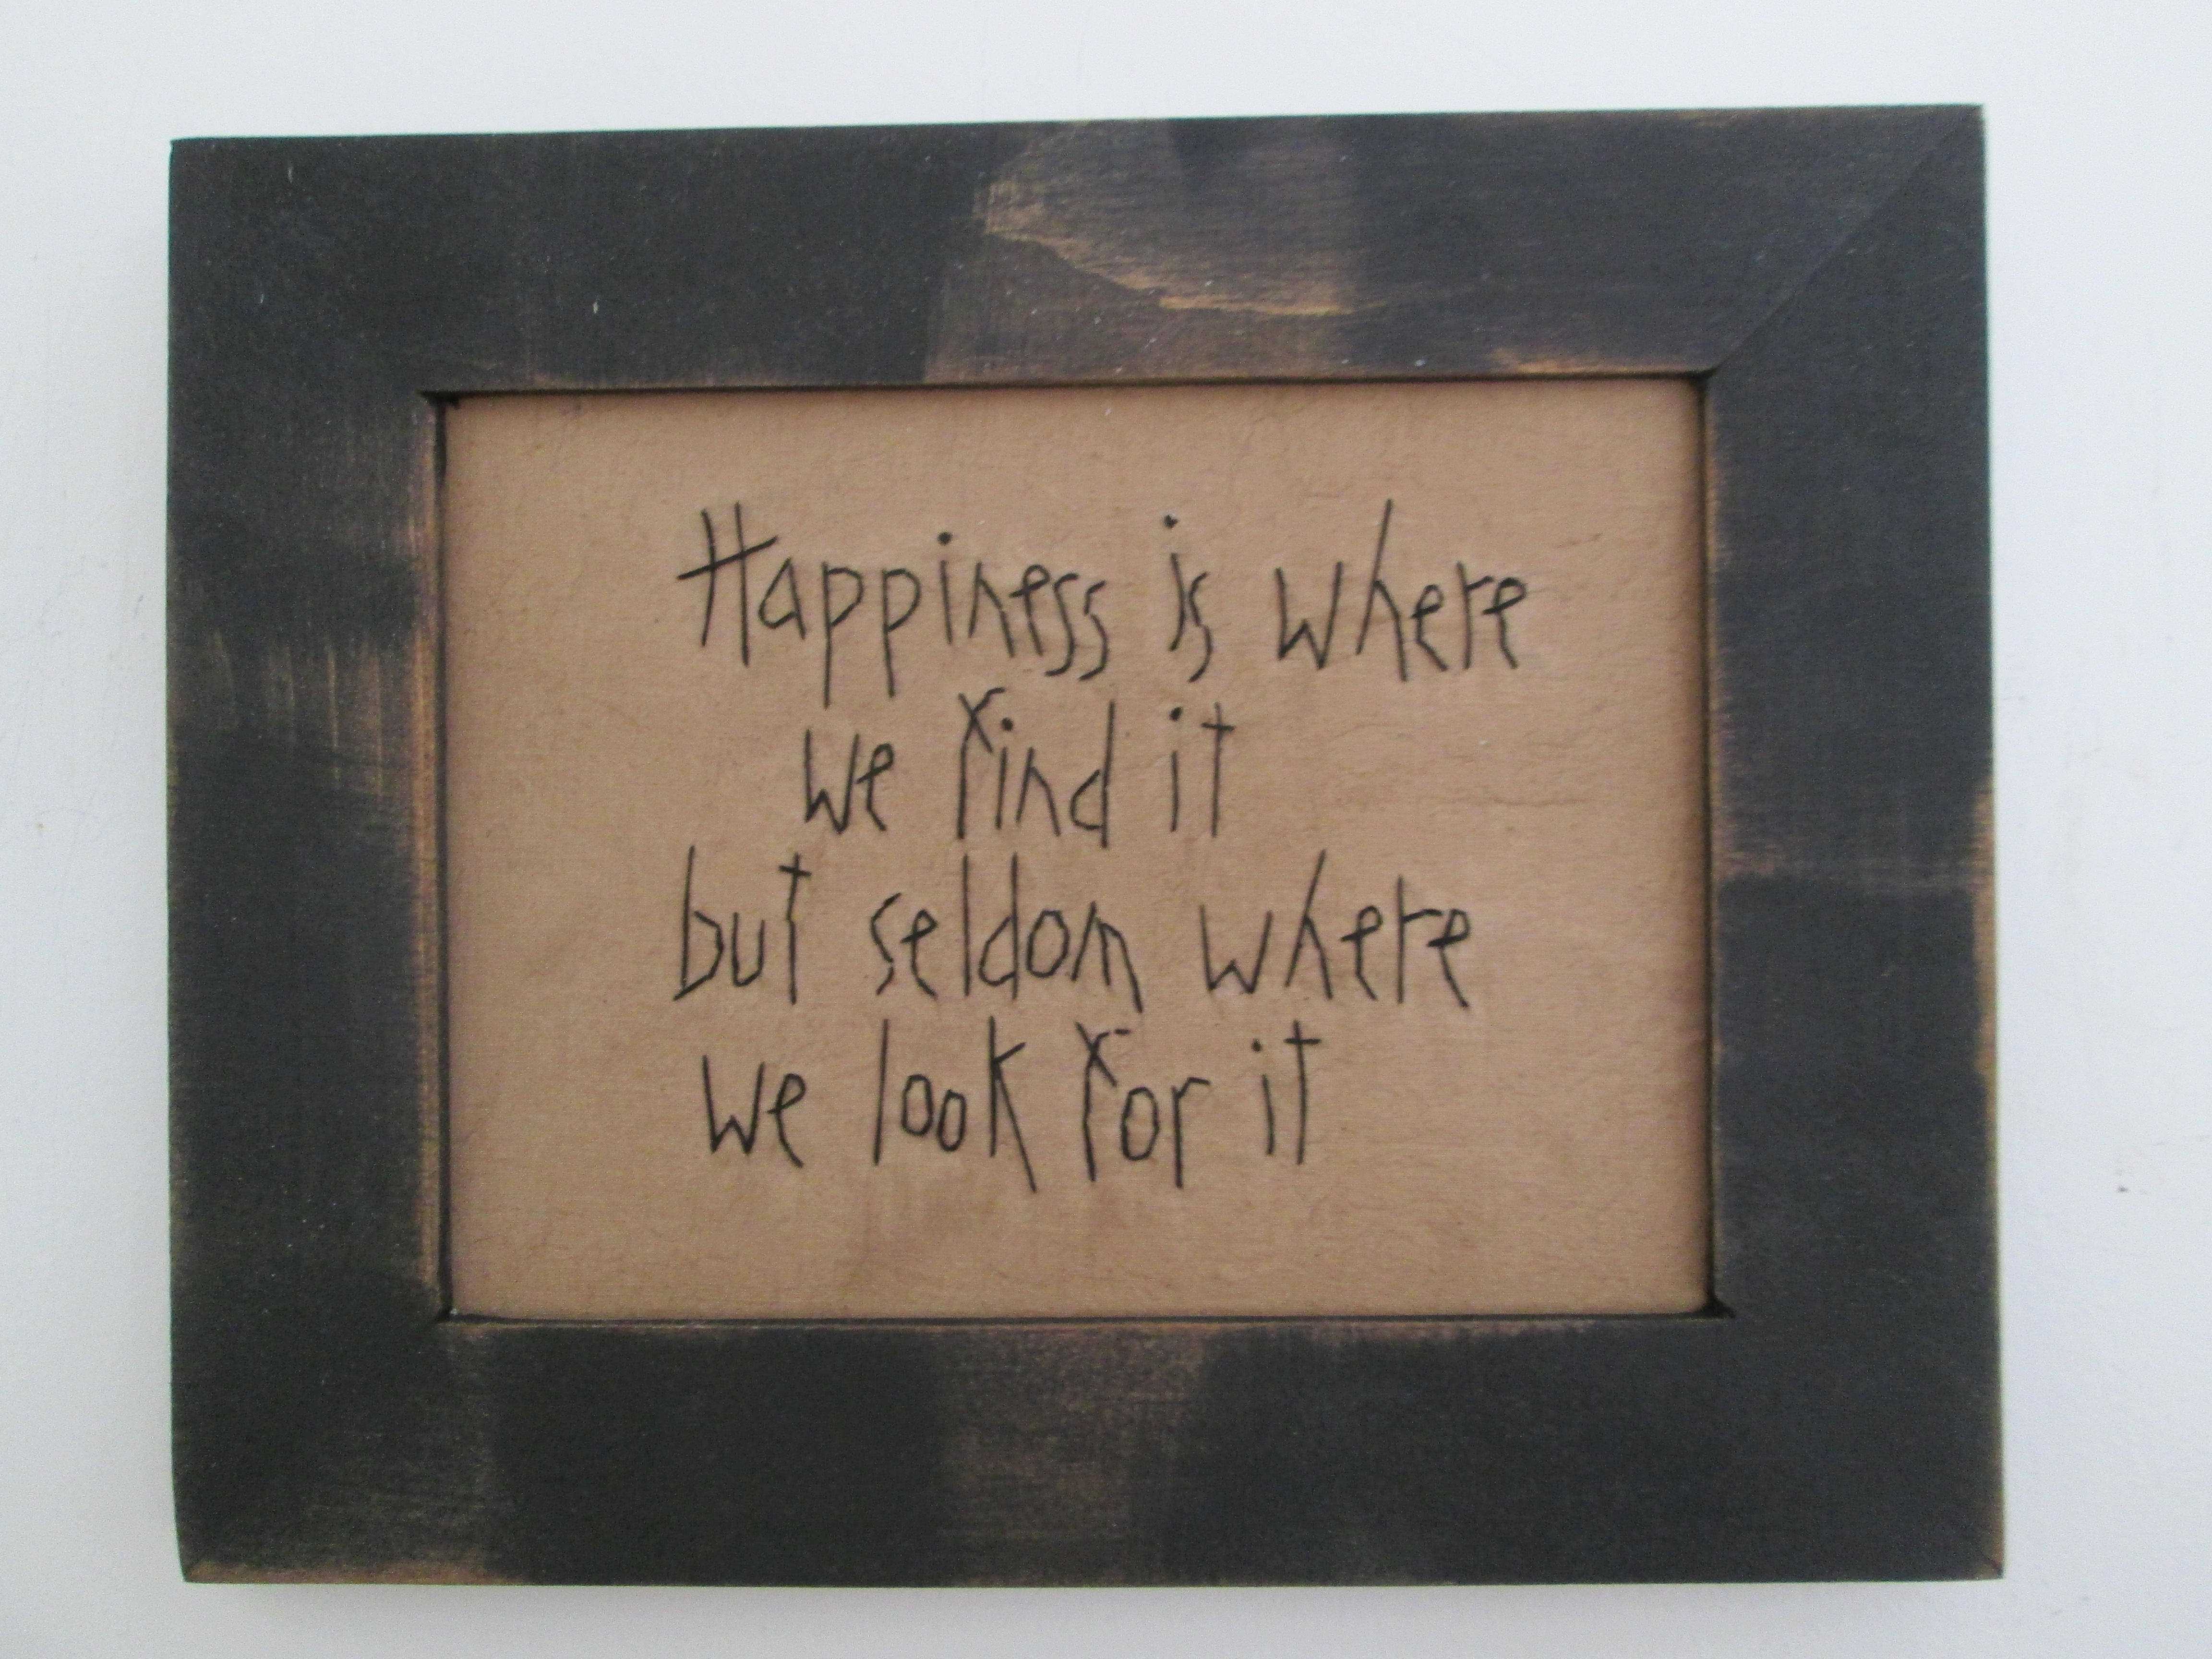 Happiness is where
we find it
but seldom where
we look for it